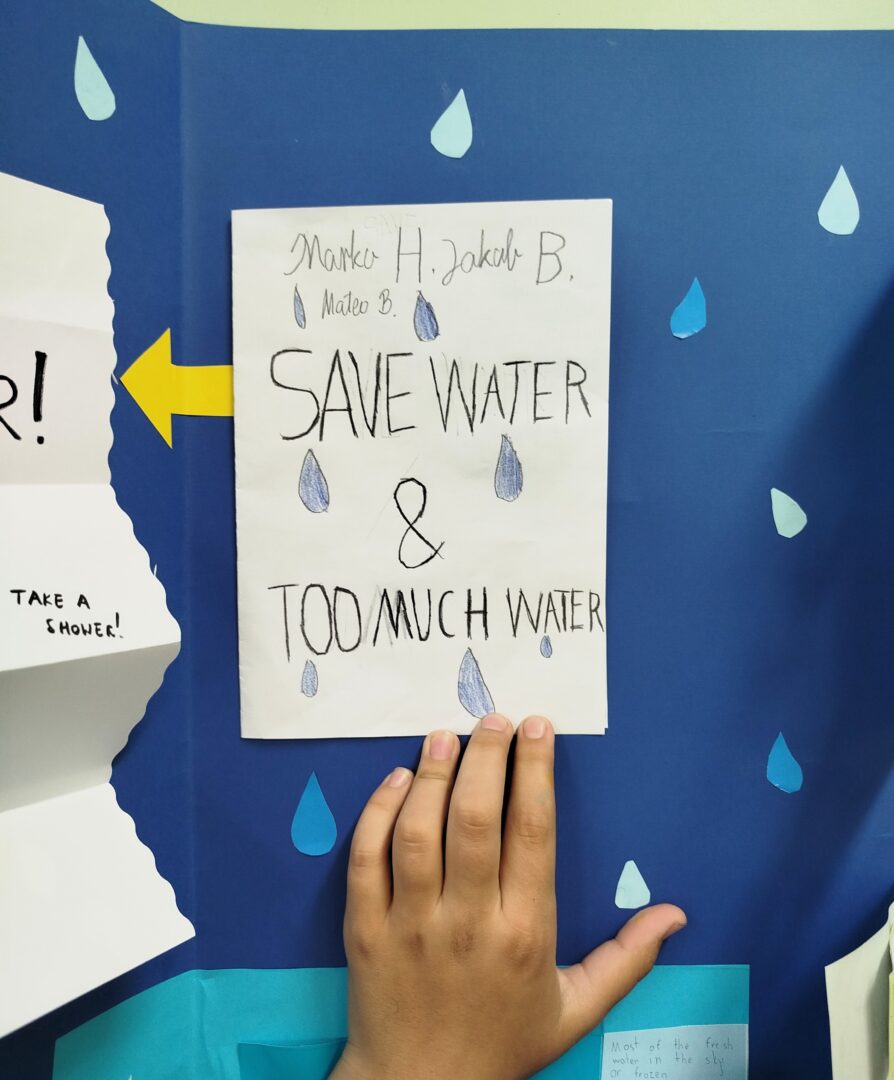 R!
TAKE A
SHOWER!
Marko H. Jakob B.
Mateo B.
SAVE WATER
&
TOO MUCH WATER
Most of the fresh
water in the sky
or frozen